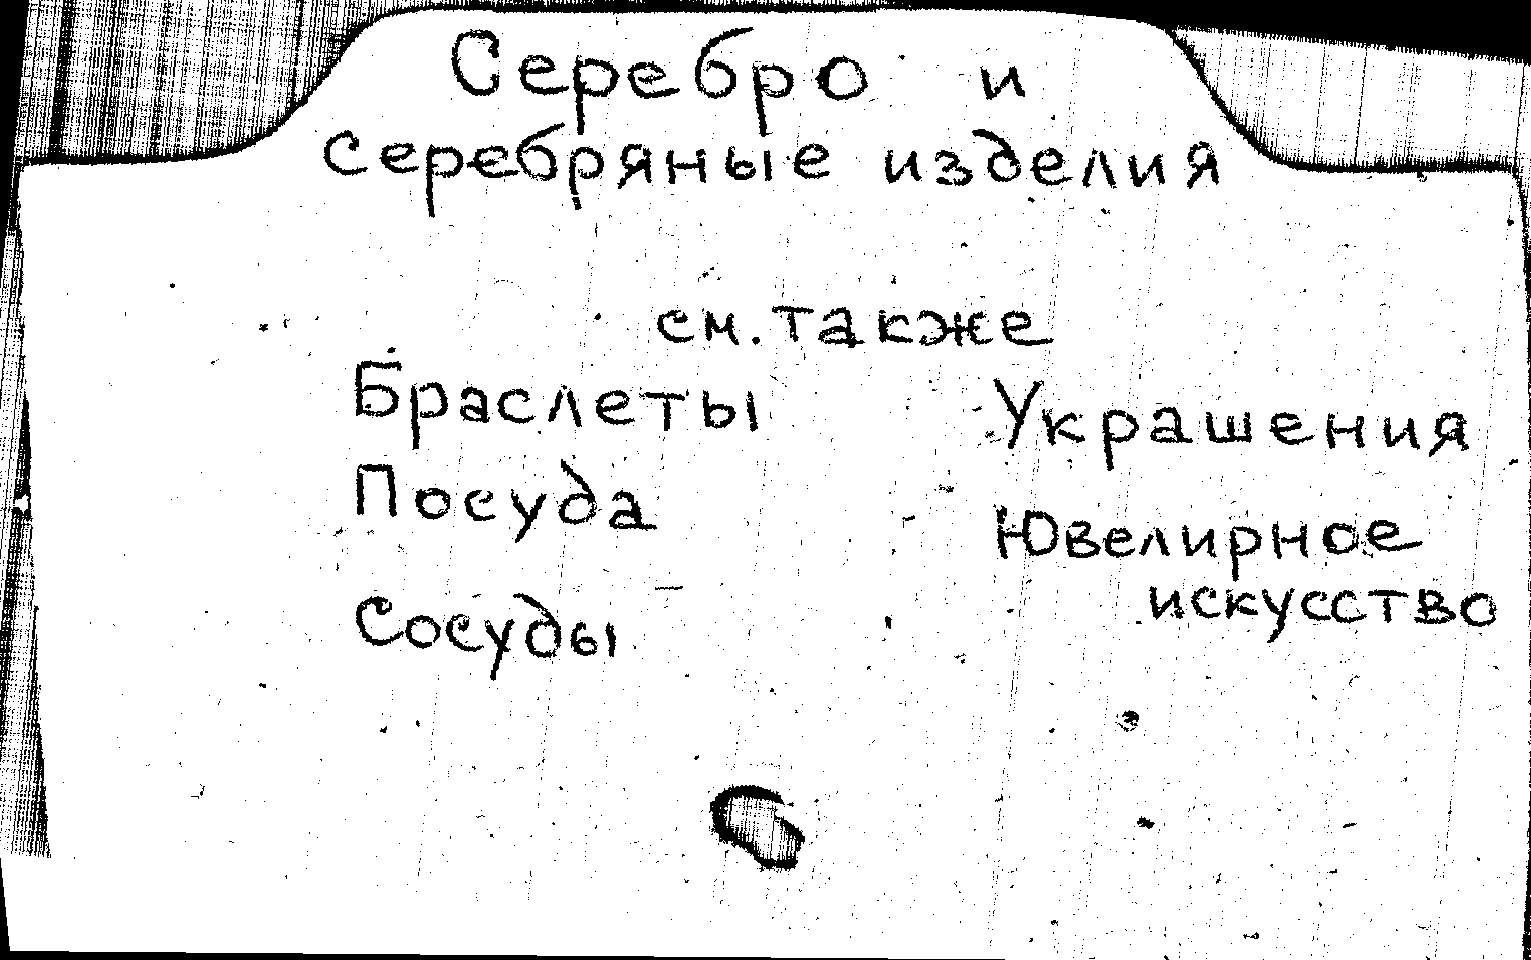 Серебро и
серебряные изделия
см. также
Браслеты
Посуда
Сосуды
Украшения
Ювелирное
искусство